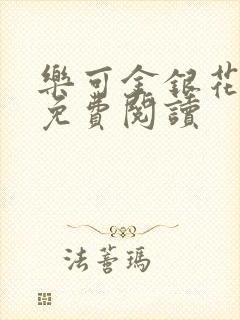 樂可金銀花
免費閱讀
法蒼瑪